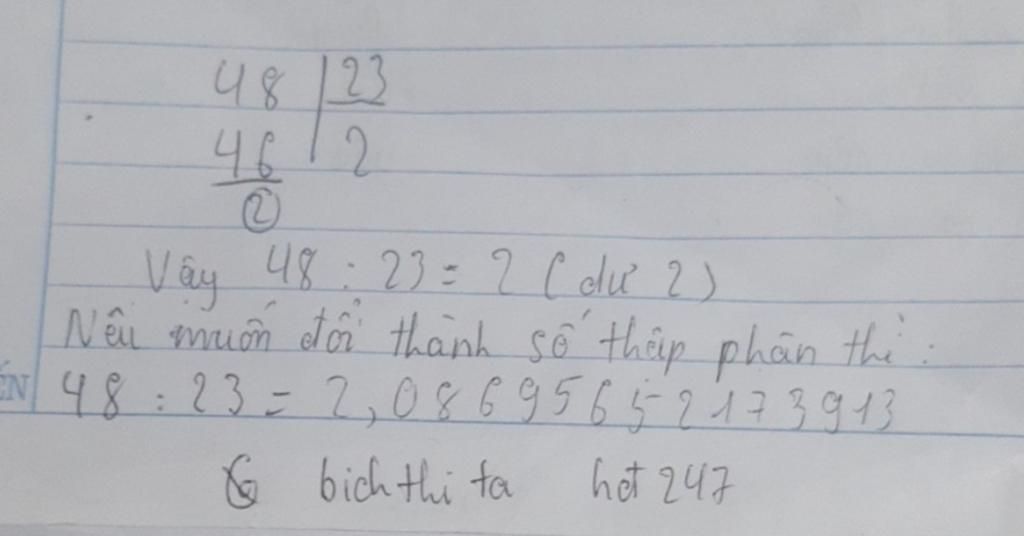 48 | 23
46 | 2
②
Vậy 48 : 23 = 2 ( dư 2 )
Nếu muốn đổi thành số thập phân thì :
48 : 23 = 2,0869565 2173913
bichthi ta hot 247